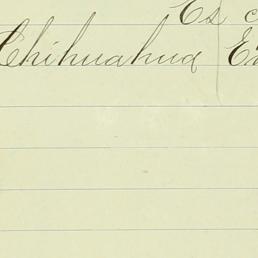 Es c
Chihuahua E